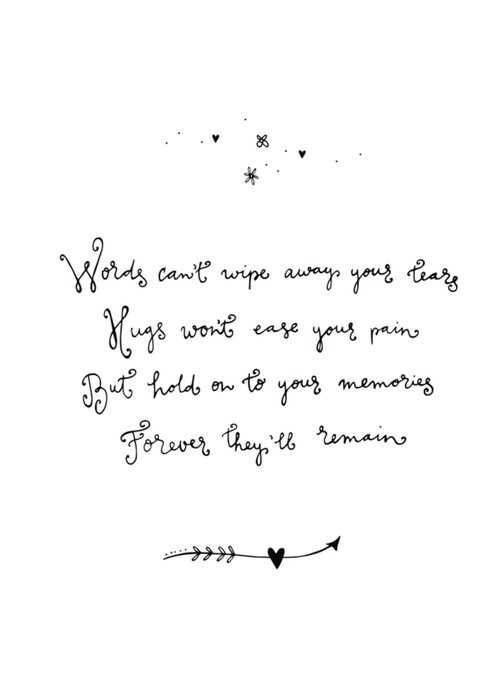 Words can't wipe away your tears
Hugs won't ease your pain
But hold on to your memories
Forever they'll remain